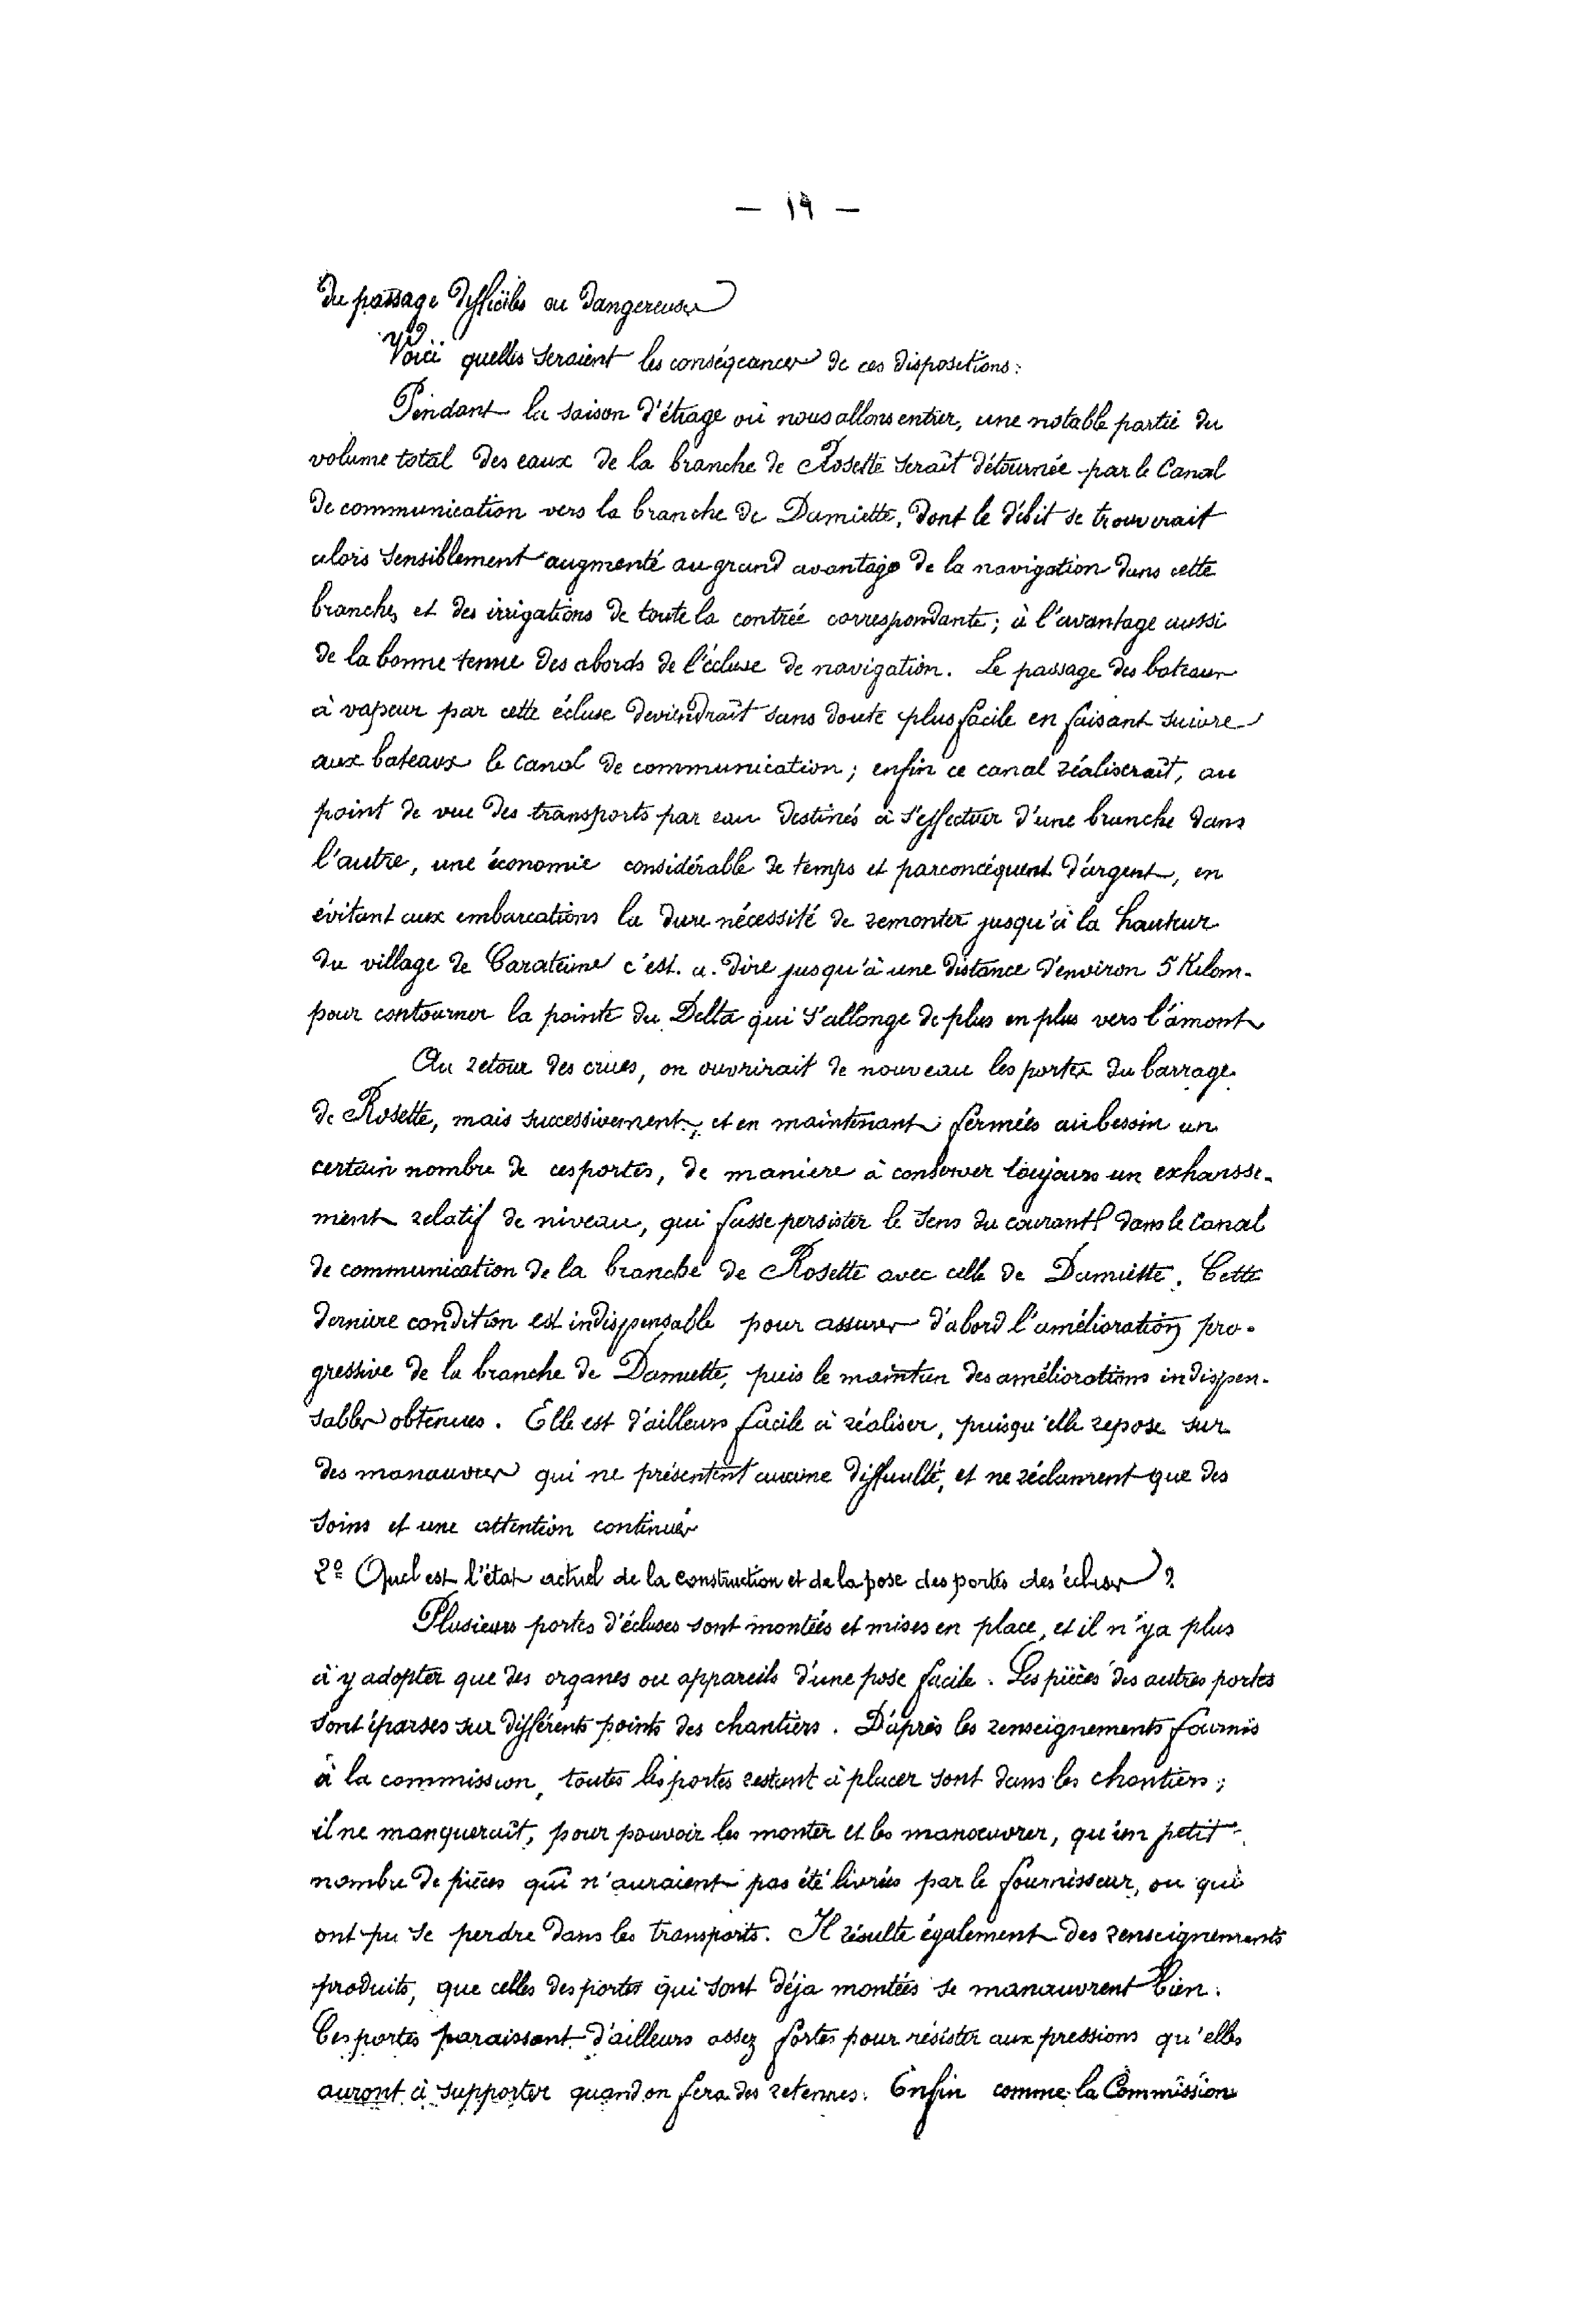 — 19 —
du passage difficiles ou dangereuses
Voici quelles seraient les conséqeances de ces dispositions :
Pendant la saison d'étiage où nous allons entrer, une notable partie du
volume total des eaux de la branche de Rosette serait détournée par le Canal
de communication vers la branche de Damiette, dont le débit se trouverait
alors sensiblement augmenté au grand avantage de la navigation dans cette
branche, et des irrigations de toute la contrée correspondante ; à l'avantage aussi
de la bonne tenue des abords de l'écluse de navigation. Le passage des bateaux
à vapeur par cette écluse deviendrait sans doute plus facile en faisant suivre
aux bateaux le canal de communication ; enfin ce canal réaliserait, au
point de vue des transports par eau destinés à s'effectuer d'une branche dans
l'autre, une économie considérable de temps et parconcéquent d'argent, en
évitant aux embarcations la dure nécessité de remonter jusqu'à la hauteur
du village de c'est. a. dire jusqu'à une distance d'environ 5 Kilom-
pour contourner la pointe du Delta qui s'allonge de plus en plus vers l'amont
Au retour des crues, on ouvrirait de nouveau les portes du barrage
de Rosette, mais successivement, et en maintenant fermées au besoin un
certain nombre de ces portes, de manière à conserver toujours un exhausse-
ment relatif de niveau, qui fasse persister le sens du courant dans le Canal
de communication de la branche de Rosette avec celle de Damiette. Cette
dernière condition est indispensable pour assurer d'abord l'amélioration pro-
gressive de la branche de Damiette, puis le maintien des améliorations indispen-
sables obtenues. Elle est d'ailleurs facile à réaliser, puisqu'elle repose sur
des manœuvres qui ne présentent aucune difficulté, et ne réclament que des
soins et une attention continués
2º Quel est l'état actuel de la construction et de la pose des portes des écluses ?
Plusieurs portes d'écluses sont montées et mises en place, et il n'y a plus
à y adopter que des organes ou appareils d'une pose facile. Les pièces des autres portes
sont éparses sur différents points des chantiers. D'après les renseignements fournis
à la commission, toutes les portes restant à placer sont dans les chantiers ;
il ne manquerait, pour pouvoir les monter et les manœuvrer, qu'un petit
nombre de pièces qui n'auraient pas été livrées par le fournisseur, ou qui
ont pu se perdre dans les transports. Il résulte également des renseignements
produits, que celles des portes qui sont déja montées se manœuvrent bien.
Ces portes paraissent d'ailleurs assez fortes pour résister aux pressions qu'elles
auront à supporter quand on fera des retenues. Enfin comme la Commission